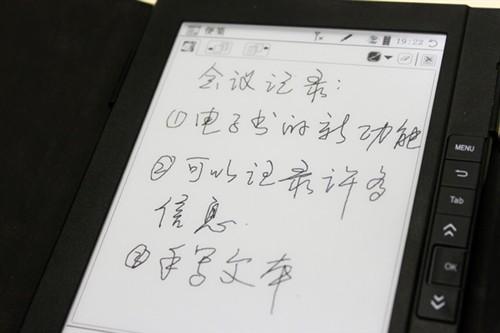 便笺 19:22
会议记录:
①电子书的新功能
②可以记录许多
信息.
③手写文本
MENU
Tab
OK